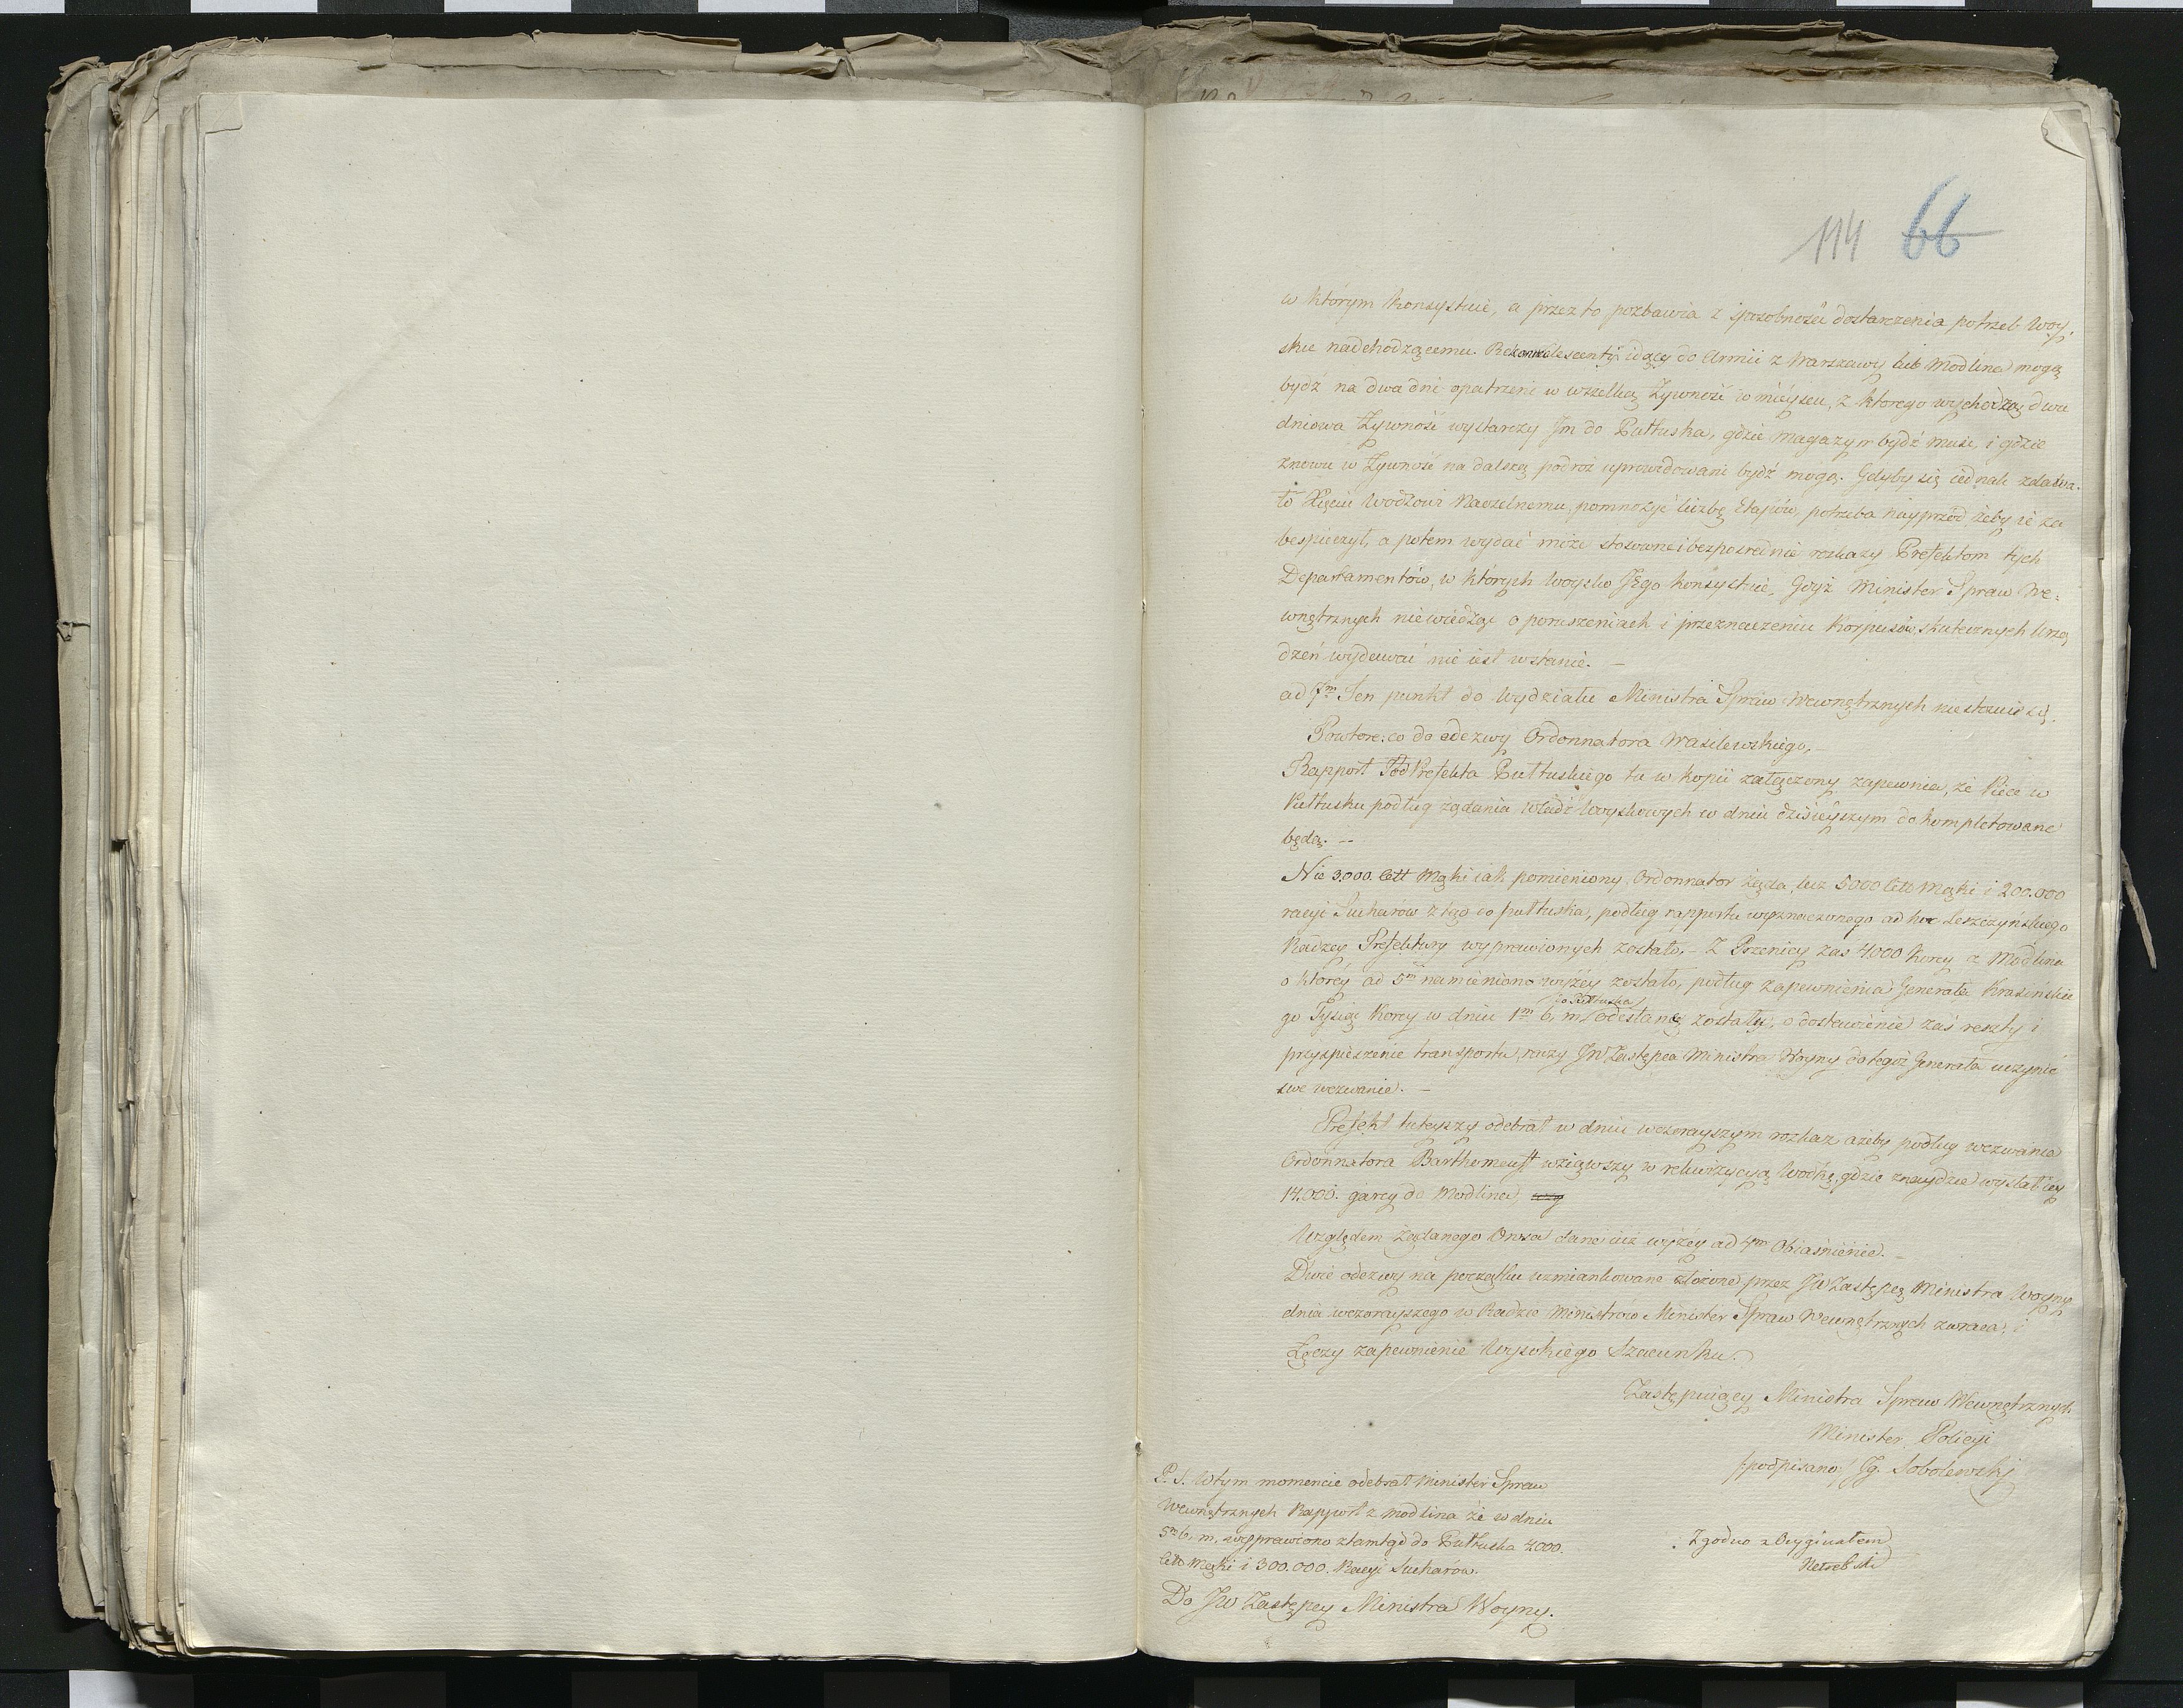 114 66
w którym konsystuie, a przez to pozbawia i sposobności dostarczenia potrzeb Woy,
sku nadchodzącemu. Rekonwalescenty idący do Armii z Warszawy lub Modlina mogą
bydź na dwa dni opatrzeni w wszelką Żywność w mieyscu, z którego wychodzą, dwu
dniowa Żywność wystarczy Im do Pułtuska, gdzie magazyn bydź musi, i gdzie
znowu w Żywność na dalszą podróż uprowidowani bydź mogą. Gdyby się iednak zdawa-
ło Xięciu Wodzowi Naczelnemu, pomnożyć liczbę Etapów, potrzeba nayprzód żeby ie za
bespieczył, a potem wydać może stosowne i bezpośrednie rozkazy Prefektom tych
Departamentów, w których Woysko Jego konsystuie, Gdyż Minister Spraw We-
wnętrznych niewiedząc o poruszeniach i przeznaczeniu Korpusów, skutecznych Urzą
dzeń wydawać nie iest wstanie. —
ad 7m Ten punkt do Wydziału Ministra Spraw Wewnętrznych niestosuie się.
Powtore. co do odezwy Ordonnatora Wasilewskiego, —
Rapport Pod Prefekta Pułtuskiego tu w kopii załączony zapewnia, że Piece w
Pułtusku podług żądania Władz Woyskowych w dniu dzisieyszym dokompletowane
będą. —
Nie 3.000 Cett Mąki iak pomieniony Ordonnator żąda, lecz 5000 Cett Mąki i 200.000
racyi Sucharów ztąd do Pułtuska, podług rapportu wyznaczonego ad hoc Leszczyńskiego
Radzcy Prefektury wyprawionych zostało. — Z Pszenicy zas 4000 Korcy z Modlina
o którey ad 5m namieniono wyżey zostało, podług zapewnienia Generała Krasińskie
go Tysiąc Korcy w dniu 1m b. m. do Pułtuska odesłane zostały, o dostawienie zaś reszty i
przyspieszenie transportu, raczy JW Zastępca Ministra Woyny do tegoż Generała uczynić
swe wezwanie. —
Prefekt tuteyszy odebrał w dniu wczorayszym rozkaz ażeby podług wezwania
Ordonnatora Barthomeuf wziąwszy w rekwizycyą Wodkę, gdzie znaydzie wysłał iey
14.000. garcy do Modlina,
Względem żądanego Owsa dane iuż wyżey ad 4m Obiaśnienie. —
Dwie odezwy na początku wzmiankowane złożone przez JW Zastępcę Ministra Woyny
dnia wczorayszego w Radzie Ministrow Minister Spraw Wewnętrznych zwraca, i
Łączy zapewnienie Wysokiego Szacunku.
Zastępuiący Ministra Spraw Wewnętrznych
Minister Policyi
/:podpisano:/ Ig. Sobolewski
P. S. W tym momencie odebrał Minister Spraw
Wewnętrznych Rapport z Modlina że w dniu
5m b. m. wyprawiono ztamtąd do Pułtuska 4000.
Cett Mąki i 300.000. Racyi Sucharów.
Zgodno z Oryginałem
Do JW Zastępcy Ministra Woyny.